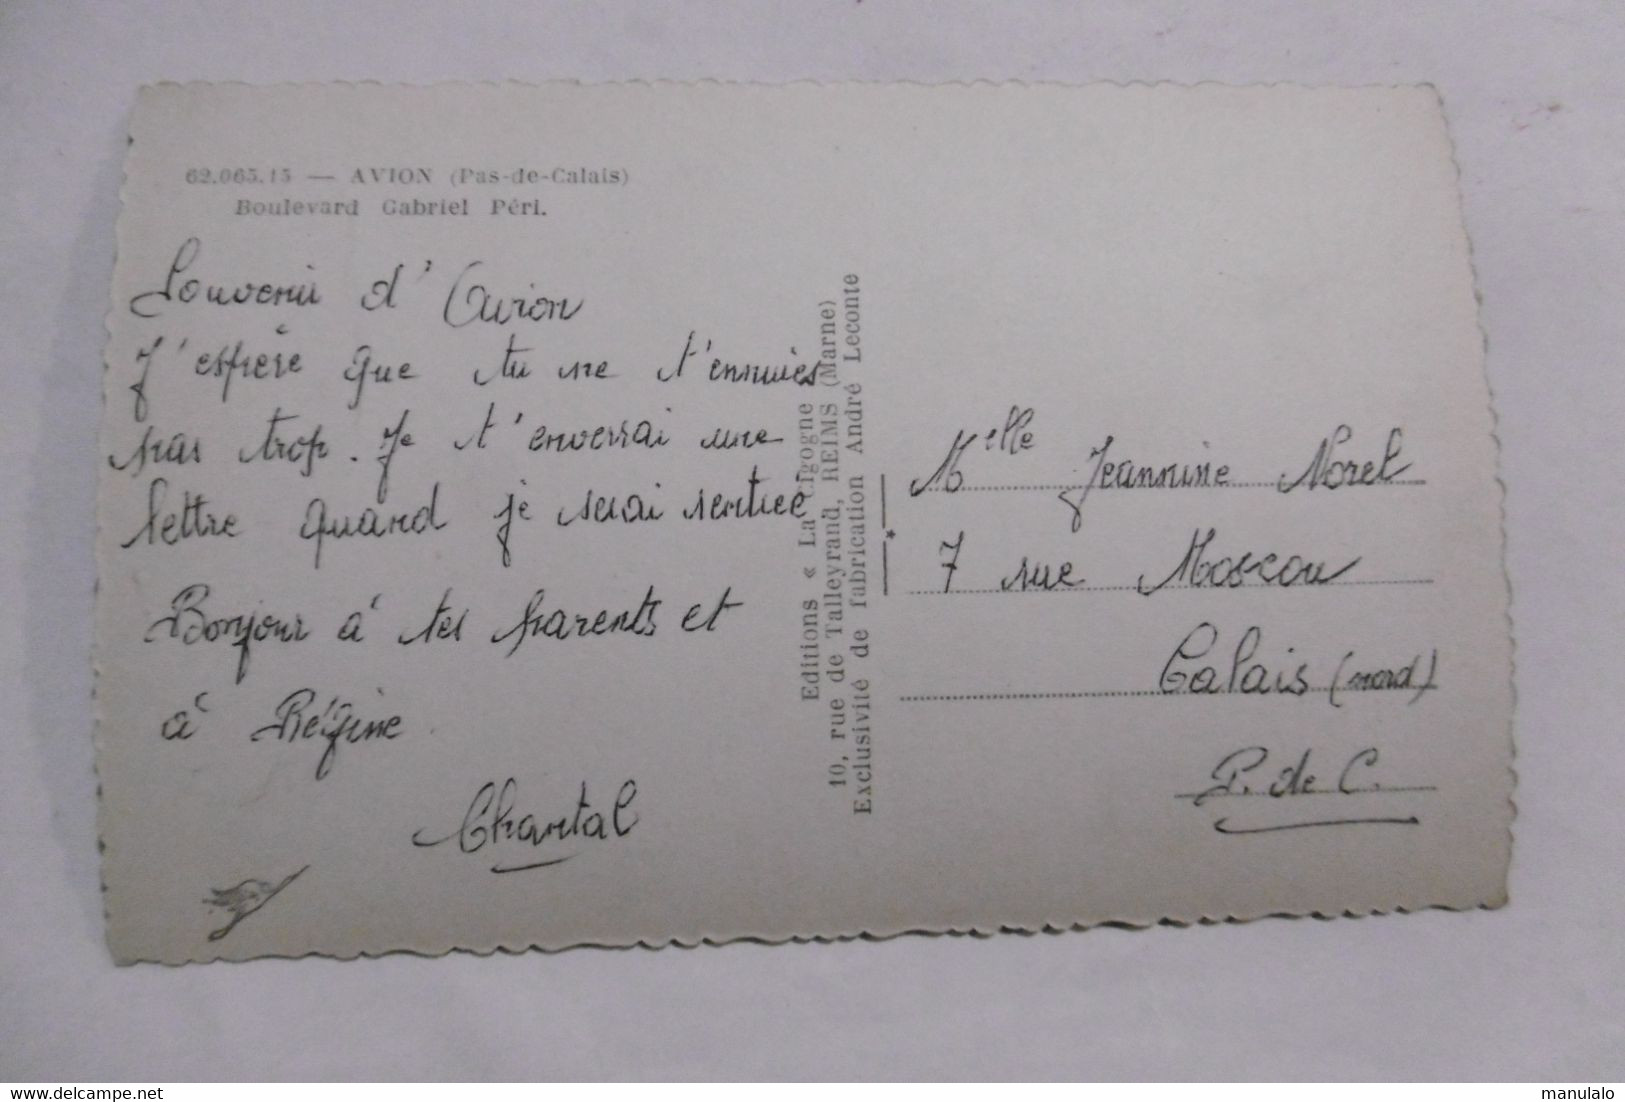 62.065.15 — AVION (Pas-de-Calais)
Boulevard Gabriel Péri.
Souvenir d'Avion
J'espère que tu ne t'ennuies
pas trop. Je t'enverrai une
lettre quand je serai rentrée
Bonjour à tes parents et
à Régine
Chantal
Editions « La Cigogne
10, rue de Talleyrand, REIMS (Marne)
Exclusivité de fabrication André Leconte
Melle Jeannine Norel
7 rue Moscou
Calais (nord)
P. de C.
www.delcampe.net
manulalo